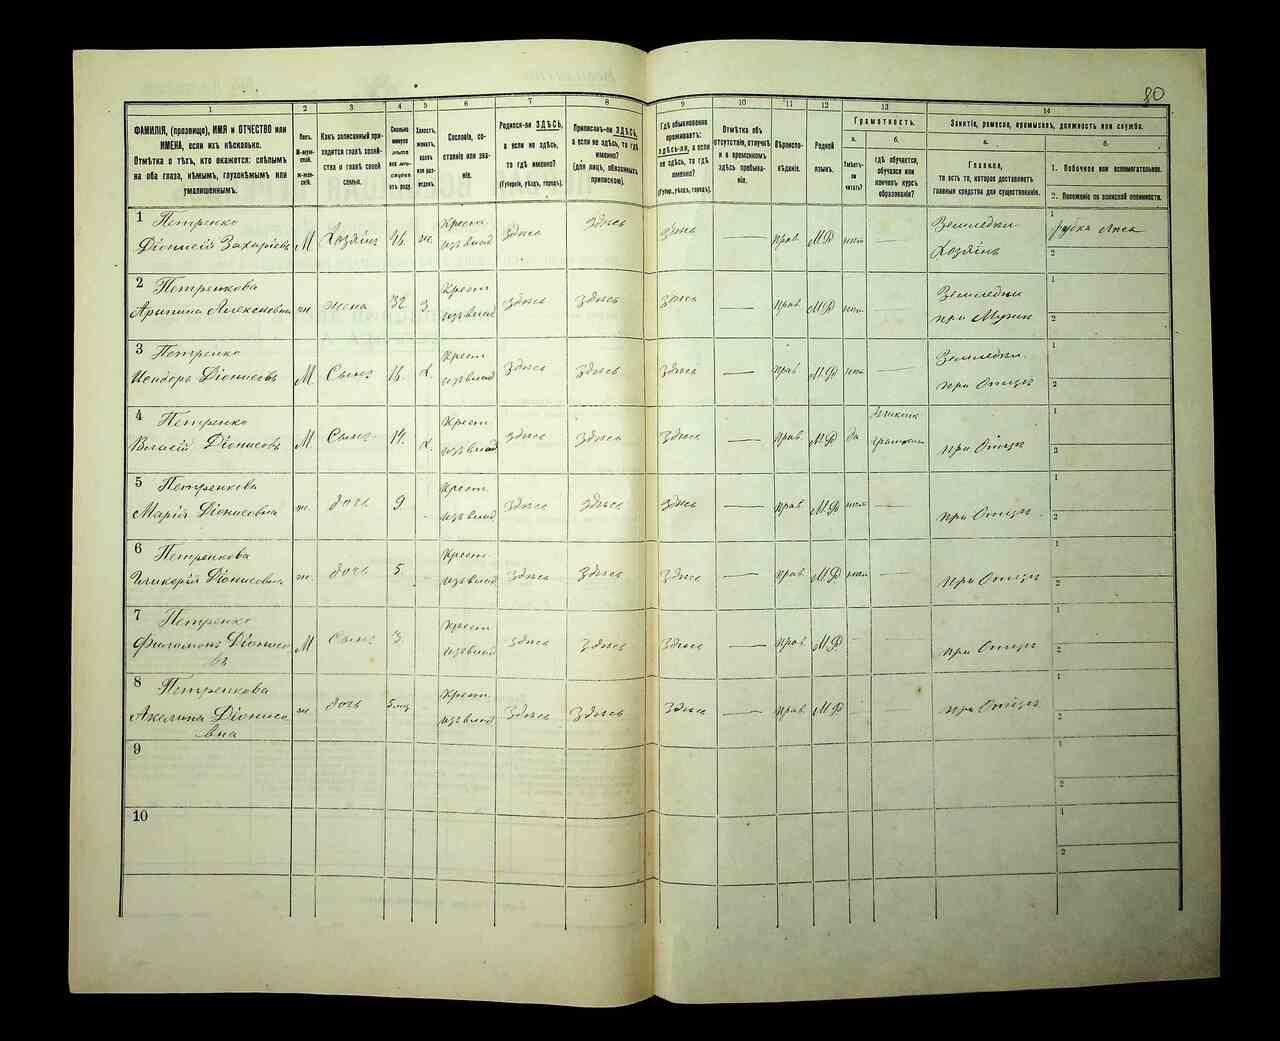 80
1 2 3 4 5 6 7 8 9 10 11 12 13 14
ФАМИЛІЯ, (прозвище), ИМЯ и ОТЧЕСТВО или
ИМЕНА, если ихъ нѣсколько.
Отмѣтка о тѣхъ, кто окажется: слѣпымъ
на оба глаза, нѣмымъ, глухонѣмымъ или
умалишеннымъ.
Полъ.
М-муж-
ской.
ж-жен-
скій.
Какъ записанный при-
ходится главѣ хозяй-
ства и главѣ своей
семьи.
Сколько
минуло
лѣтъ
отъ роду.
Холостъ,
женатъ,
вдовъ
или раз-
веденъ.
Сословіе, со-
стояніе или зва-
ніе.
Родился-ли ЗДѢСЬ,
а если не здѣсь,
то гдѣ именно?
(Губернія, уѣздъ, городъ).
Приписанъ-ли ЗДѢСЬ,
а если не здѣсь, то гдѣ
именно?
(для лицъ, обязанныхъ
припиской).
Гдѣ обыкновенно
проживаетъ:
здѣсь-ли, а если
не здѣсь, то гдѣ
именно?
(Губер., уѣздъ, городъ).
Отмѣтка объ
отсутствіи, отлучкѣ
и о временномъ
здѣсь пребыва-
ніи.
Вѣроиспо-
вѣданіе.
Родной
языкъ.
Грамотность.
а.
Умѣетъ-
ли
читать?
б.
гдѣ обучается,
обучался или
кончилъ курсъ
образованія?
Занятіе, ремесло, промыселъ, должность или служба.
а.
Главное,
то есть то, которое доставляетъ
главныя средства для существованія.
б.
1. Побочное или вспомогательное.
2. Положеніе по воинской повинности.
1 Петренко
Діонисій Захаріевъ М Хозяинъ ж. Крест. изъ влад здѣсь здѣсь здѣсь — прав. МР нѣт — Земледѣл Хозяинъ 1 рубка лѣса
2
2 Петренкова
Арипина Алексѣевна ж. жена 32 З. Крест. изъ влад здѣсь здѣсь здѣсь — прав. МР нѣт — Земледѣл при Мужи 1
2
3 Петренко
Діонисовъ М Сынъ 16. Х. Крест. изъ влад здѣсь здѣсь здѣсь — прав МР нѣт — Земледѣл. при Отцѣ 1
2
4 Петренко
Власій Діонисовъ М Сынъ 14. Х. Крест. изъ влад здѣсь здѣсь здѣсь — прав. МР да при Отцѣ 1
2
5 Петренкова
Марія Діонисовна ж. дочь 9 Крест. изъ влад здѣсь здѣсь здѣсь — прав МР нѣт — при Отцѣ 1
2
6 Петренкова
Гликерія Діонисовна ж. дочь 5. Крест. изъ влад здѣсь здѣсь здѣсь — прав. МР нѣт — при Отцѣ 1
2
7 Петренко
Филимонъ Діонисо
въ М Сынъ 3. Крест. изъ влад здѣсь здѣсь здѣсь — прав. МР — при Отцѣ 1
2
8 Петренкова
Акелина Діонисо
вна ж дочь 5 мц Крест. изъ влад здѣсь здѣсь здѣсь — прав. МР — при Отцѣ 1
2
9 1
2
10 1
2